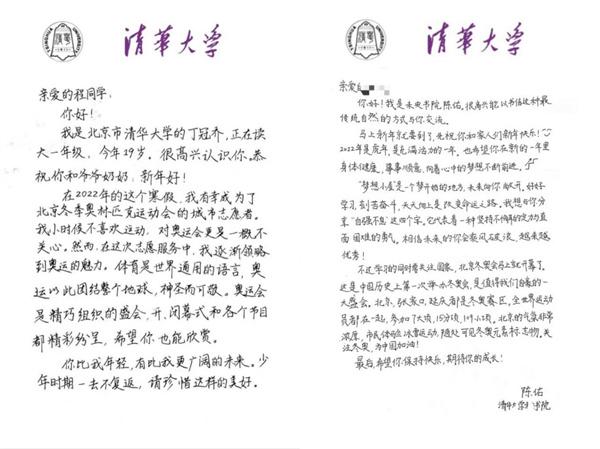 清華大学
亲爱的程同学：
你好！
我是北京市清华大学的丁冠乔，正在读
大一年级，今年19岁。很高兴认识你。恭
祝你和爷爷奶奶：新年好！
在2022年的这个寒假，我有幸成为了
北京冬季奥林匹克运动会的城市志愿者。
我小时候不喜欢运动，对奥运会更是一概不
关心。然而，在这次志愿服务中，我逐渐领略
到奥运的魅力。体育是世界通用的语言，奥
运以此团结整个地球，神圣而可敬。奥运会
是精巧组织的盛会，开、闭幕式和各个节目
都精彩纷呈，希望你也能欣赏。
你比我年轻，有比我更广阔的未来。少
年时期一去不复返，请珍惜这样的美好。
清華大学
亲爱
你好！我是未央书院陈佑。很高兴能以书信这种最
传统自然的方式与你交流。
马上新年就要到了，先祝你和家人们新年快乐！
2022年是虎年，是充满活力的一年。也希望你在新的一年里
身体健康，事事顺意，向着心中的梦想不断前进。
是一个梦开始的地方，未来向你敞开。好好
学习，刻苦奋斗，大大闯上是改变命运之路。我想与你分
享“自强不息”这四个字，它代表着一种坚持不懈的定力与直
面困难的勇气，相信未来的你会乘风破浪，越来越
优秀！
不过学习的同时需关注国家，北京冬奥会马上就开幕了。
这是中国历史上第一次举办冬奥会，是值得我们自豪的一
大盛会。北京，张家口，延庆都是冬奥赛区，全世界运动
员都在一起，参加7大项，15分项，109小项。北京的气氛非常
浓厚，市民体验冰雪运动，随处可见冬奥元素标志物。关
注冬奥，为中国加油！
最后，希望你保持快乐，期待你的成长！
陈佑
清华大学 书院